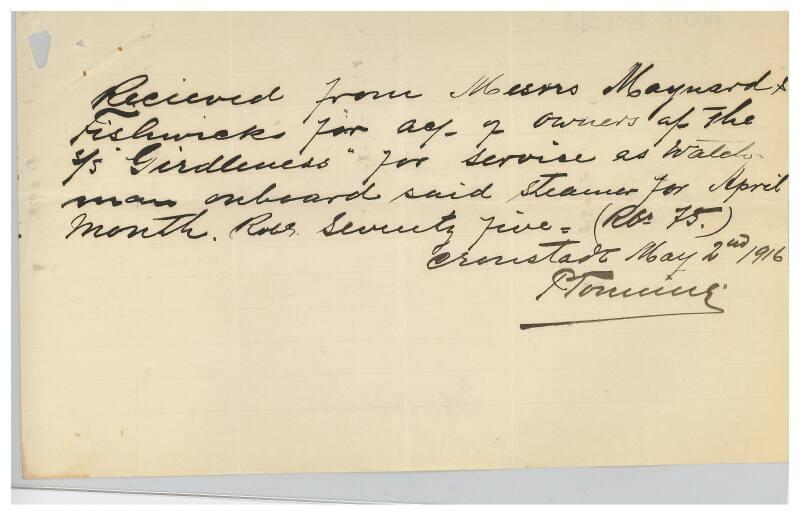 Recieved from Messrs Maynard &
Fishwicks for a/c of owners of the
S/S "Girdleness" for service as Watch-
man onboard said steamer for April
Month. Rbls. Seventy five = (Rbs 75.)
Cronstadt May 2nd 1916